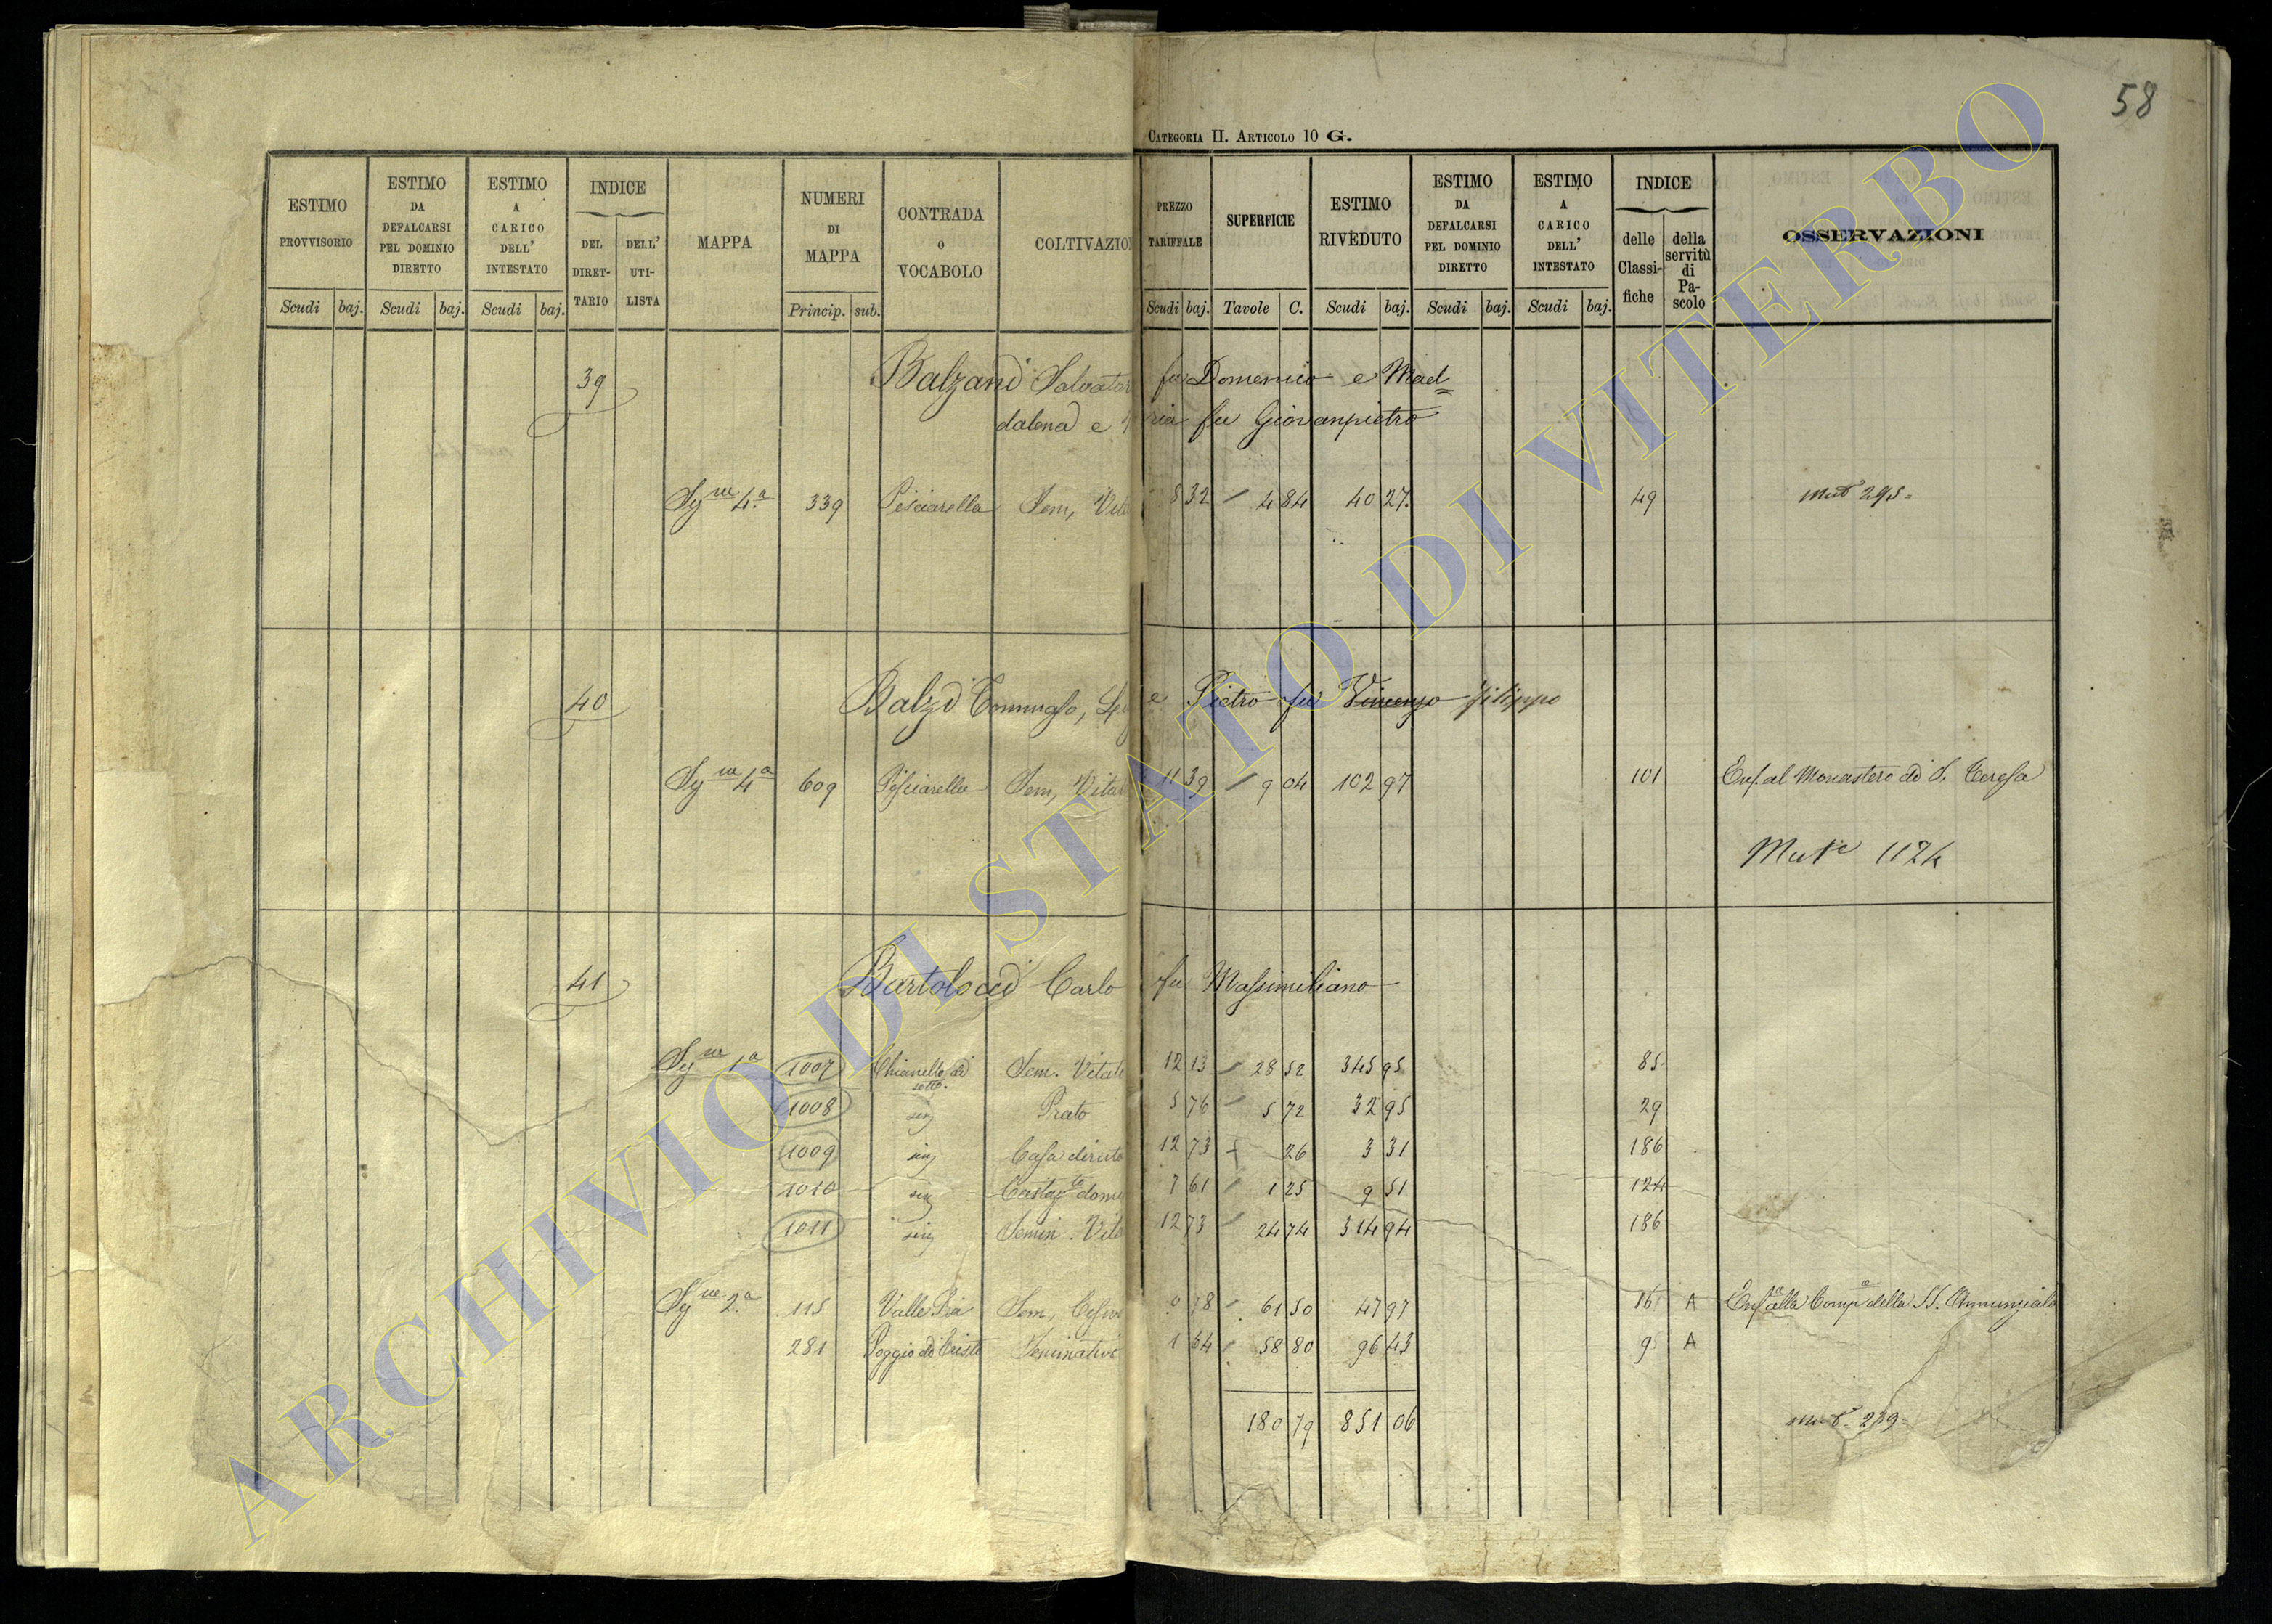 58
CATEGORIA II. ARTICOLO 10 G.
ESTIMO PROVVISORIO
ESTIMO DA DEFALCARSI PEL DOMINIO DIRETTO
ESTIMO A CARICO DELL' INTESTATO
INDICE
DEL DIRETTARIO
DELL' UTILISTA
MAPPA
NUMERI DI MAPPA
CONTRADA O VOCABOLO
COLTIVAZION
PREZZO TARIFFALE
SUPERFICIE
ESTIMO RIVEDUTO
ESTIMO DA DEFALCARSI PEL DOMINIO DIRETTO
ESTIMO A CARICO DELL' INTESTATO
INDICE
delle Classifiche
della servitù di Pascolo
OSSERVAZIONI
Scudi baj. Scudi baj. Scudi baj. Princip. sub. Scudi baj. Tavole C. Scudi baj. Scudi baj. Scudi baj.
39 Balzani Salvator fu Domenico e Mad=
dalena e ria fu Giovanpietro
Sez.ne 4.a 339 Pesciarella Sem, Vit 8 32 4 84 40 27. 49 Mut.e 295=
40 Balzi Tommaso, Lui e Pietro fu Vincenzo Filippo
Sez.ne 4.a 609 Pesciarella Sem, Vitat 11 39 9 04 102 97 101 Enf. al Monastero di S. Teresa
Mut.e 1124
41 Bartolocci Carlo fu Massimiliano
Sez.ne 1.a 1007 Chianello di sotto. Sem. Vitat 12 13 28 52 345 95 85
1008 sim Prato 5 76 5 72 32 95 29
1009 sim Casa diruta 12 73 26 3 31 186
1010 sim Castag.to dome 7 61 1 25 9 51 124
1011 sim Semin. Vita 12 73 24 74 314 94 186
Sez.ne 2.a 115 Valle Pia Sem, Cesivo 0 78 61 50 47 97 16 A Enf.ca alla Comp.a della SS. Annunziata
281 Poggio di Cristo Seminativo 1 64 58 80 96 43 9 A
180 79 851 06 Mut.e 239
ARCHIVIO DI STATO DI VITERBO